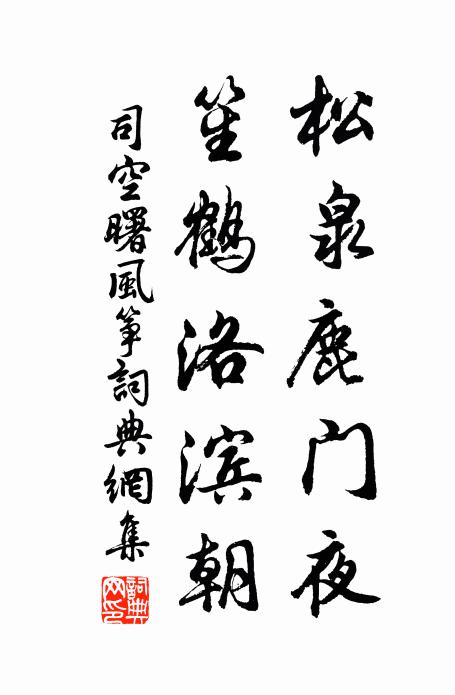 松泉鹿门夜
笙鹤洛滨朝
司空曙風筝詞典網集
詞典網印